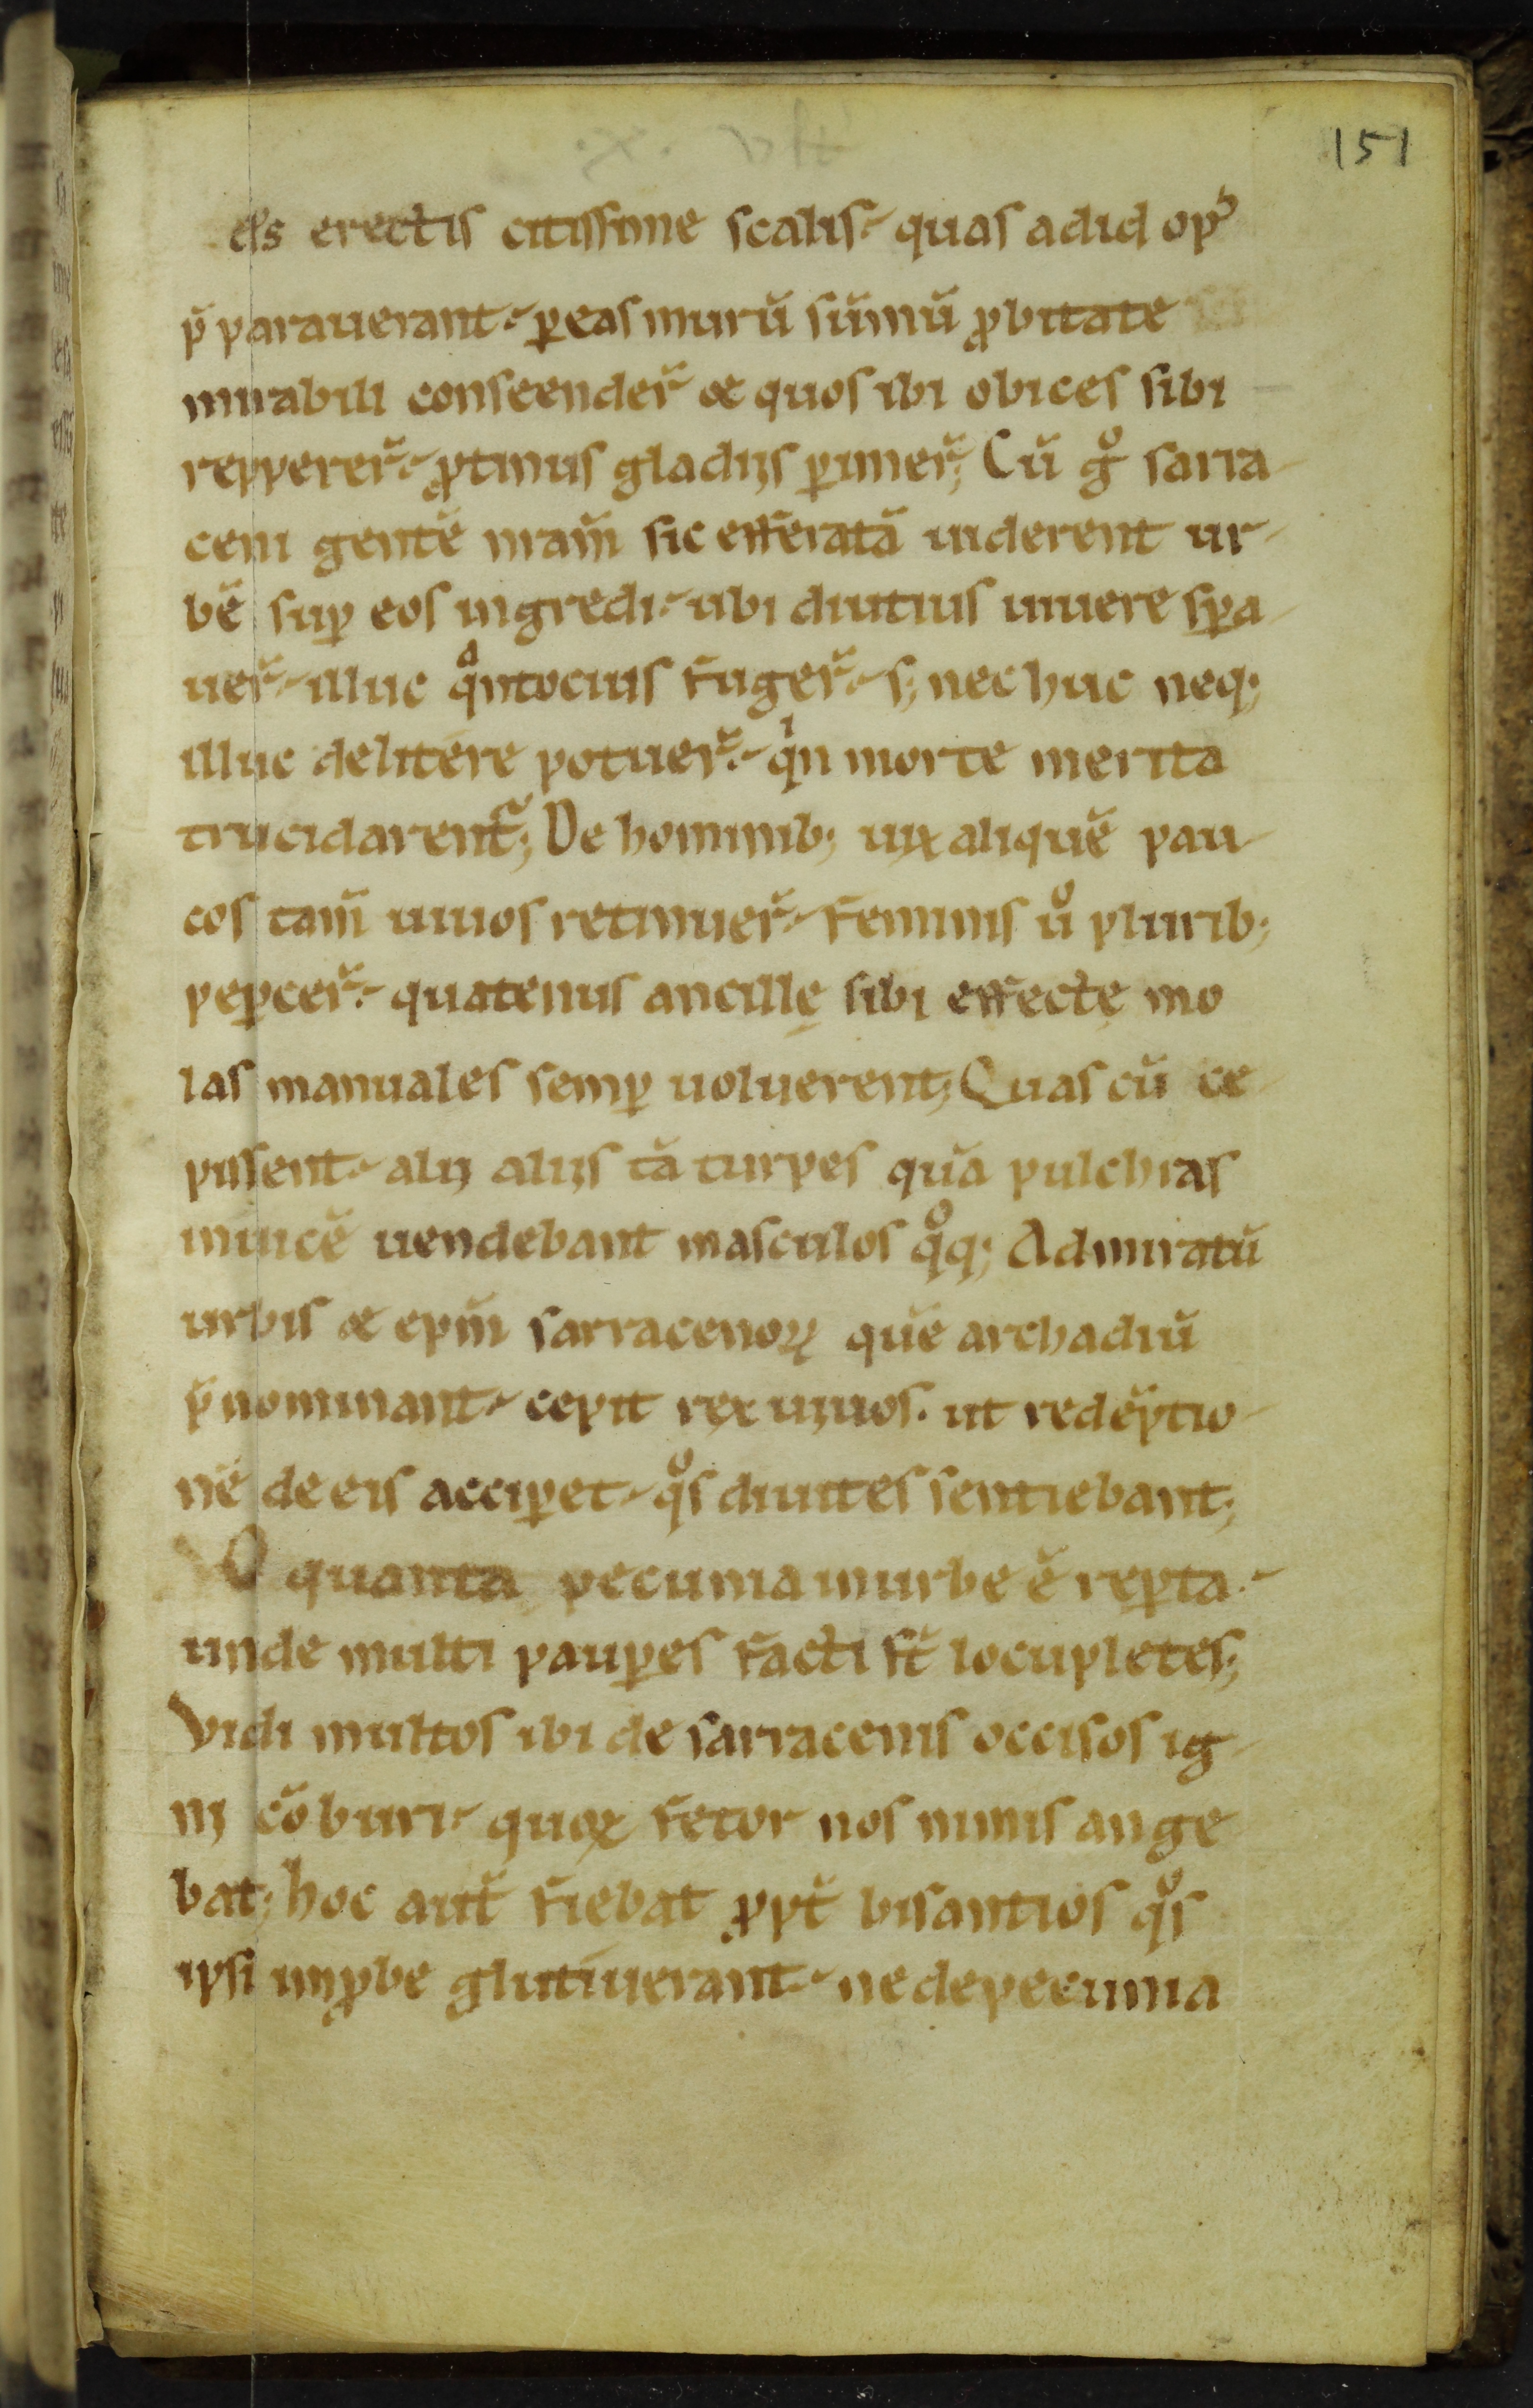 151
d̄s erectis citissime scalis. quas ad id opꝰ
p̄ parauerant. ꝑ eas murū sūmū ꝓbitate
mirabili conscender̄ & quos ibi obices sibi
reppererͣ. ꝓtinus gladiis ꝑimer̄; Cū gͦ sarra-
ceni gentē nr̄am sic efferatā uiderent ur-
bē suꝑ eos ingredi. ubi diutius uiuere sꝑa-
uer̄. illuc qͣntocius fuger̄. s; nec huc neq;
illuc delitere potuer̄. qͥn morte merita
trucidarent᷑; De hominib; uix aliquē pau-
cos tam̄ uiuos retinuer̄. feminis ůͦ plurib;
peꝑcer̄. quatenus ancillę sibi effectę mo
las manuales semꝑ uoluerent; Quas cū ce-
pissent. alii aliis tā turpes quā pulchras
inuicē uendebant masculos qͦq; Admiratū
urbis & ep̄m sarracenoꝝ quē archadiū
p̄nominant. cepit rex uiuos. ut redēptio-
nē de eis acciꝑet. qͦs diuites sentiebant;
O quanta pecunia in urbe ē reꝑta.
unde multi pauꝑes facti st̄ locupletes;
Vidi multos ibi de sarracenis occisos ig-
ni cōburi. quoꝝ fetor nos nimis ange
bat; hoc aut̄ fiebat ꝓpt̄ bisantios qͦs
ipsi imꝓbe glutiuerant. ne de pecunia